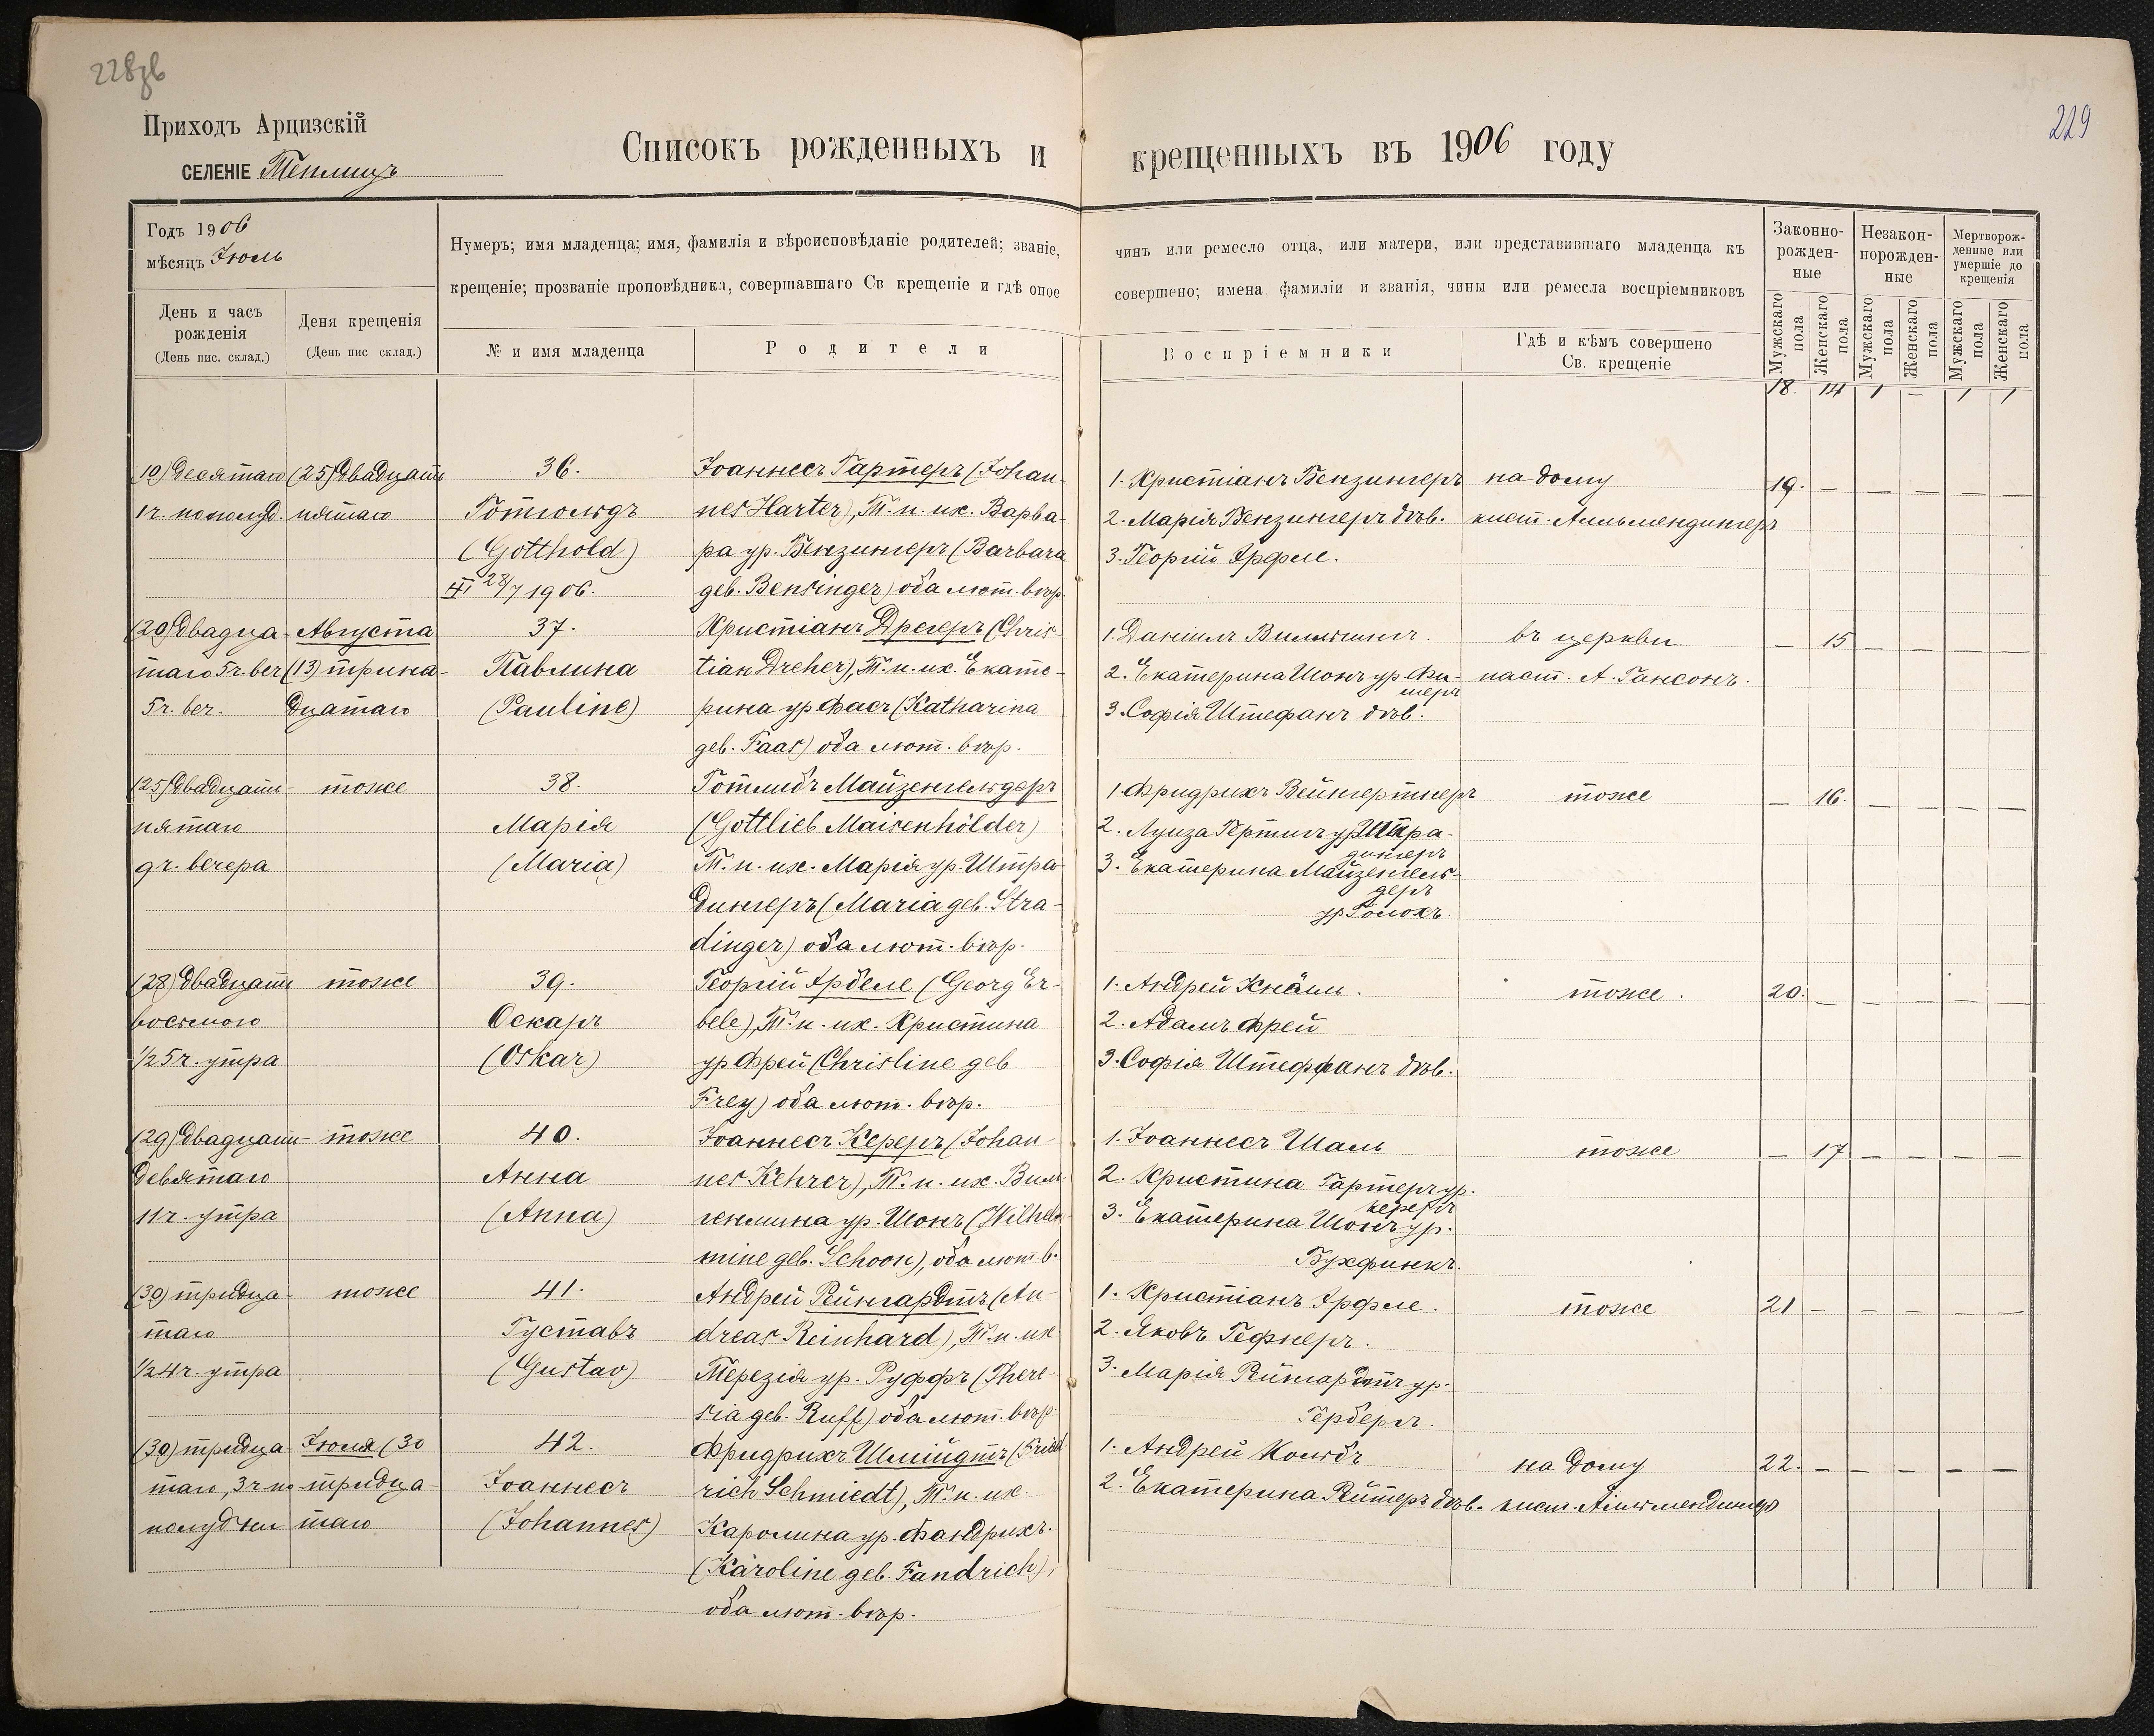 228зв
229
Приходъ Арцизскій
СЕЛЕНІЕ Теплицъ
Списокъ рожденныхъ и крещенныхъ въ 1906 году
Годъ 1906
мѣсяцъ Іюль
Нумеръ; имя младенца; имя, фамилія и вѣроисповѣданіе родителей; званіе, чинъ или ремесло отца, или матери, или представившаго младенца къ
крещеніе; прозваніе проповѣдника, совершавшаго Св крещеніе и гдѣ оное совершено; имена фамиліи и званія, чины или ремесла воспріемниковъ
День и часъ
рожденія
(День пис. склад.)
Деня крещенія
(День пис склад.)
№ и имя младенца
Родители
Воспріемники
Гдѣ и кѣмъ совершено
Св. крещеніе
Законно-
рожден-
ные
Незакон-
норожден-
ные
Мертворож-
денные или
умершіе до
крещенія
Мужскаго пола
Женскаго пола
Мужскаго пола
Женскаго пола
Мужскаго пола
Женскаго пола
18. 14 1 — 1 1
(10) десятаго
1 ч. пополуд.
(25) двадцать
пятаго
36.
Готгольдъ
(Gotthold)
28/7 1906.
Іоаннесъ Гартеръ (Johan-
nes Harter), Т. п. их. Варва-
ра ур. Бензингеръ (Barbara
geb. Bensinger) оба лют. вѣр.
1. Христіанъ Бензингеръ
2. Марія Бензингеръ дѣв.
3. Георгій Эрфле.
на дому
кист. Альмендингеръ
19. — — — — —
(20) двадца-
таго 5 ч. веч
5 ч. веч.
Августа
(13) трина-
дцатаго
37.
Павлина
(Pauline)
Христіанъ Дрегеръ (Chris-
tian Dreher), Т. п. их. Екате-
рина ур Фасъ (Katharina
geb. Faas) оба лют. вѣр.
1. Даніилъ
2. Екатерина Шонъ ур. Фи-
шеръ
3. Софія Штефанъ дѣв.
въ церкви
паст. А. Гансонъ.
— 15 — — — —
(25) двадцать-
пятаго
9 ч. вечера
тоже
38.
Марія
(Maria)
Готлибъ Майзенгельдеръ
(Gottlieb Maisenhölder)
Т. п. их. Марія ур. Штра-
дингеръ (Maria geb. Stra-
dinger) оба лют. вѣр.
1. Фридрихъ Вейнгертнеръ
2. Луиза Гертигъ ур. Штра-
дингеръ
3. Екатерина Майзенгель-
деръ
ур.
тоже
— 16. — — — —
(28) двадцать
восьмого
1/2 5 ч. утра
тоже
39.
Оскаръ
(Oskar)
Георгій Эрбеле (Georg Er-
bele), Т. п. их. Христина
ур Фрей (Christine geb
Frey) оба лют. вѣр.
1. Андрей
2. Адамъ Фрей
3. Софія Штеффанъ дѣв.
тоже.
20. — — — — —
(29) двадцать-
девятаго
11 ч. утра
тоже
40.
Анна
(Anna)
Іоаннесъ Кереръ (Johan-
nes Kehrer), Т. п. их. Виль-
гельмина ур. Шонъ (Wilhel-
mine geb. Schoon), оба лют. в.
1. Іоаннесъ Шаль
2. Христина Гартеръ ур.
Кереръ
3. Екатерина Шонъ ур.
Бухфинкъ.
тоже
— 17 — — — —
(30) тридца-
таго
1/2 4 ч. утра
тоже
41.
Густавъ
(Gustav)
Андрей Рейнгардтъ (An-
dreas Reinhard), Т. п. их
Терезія ур. Руффъ (There-
sia geb. Ruff) оба лют. вѣр.
1. Христіанъ Эрфле.
2. Яковъ Гефнеръ.
3. Марія Рейнгардтъ ур.
Герберъ.
тоже
21 — — — — —
(30) тридца-
таго, 3 ч по
полудни
Іюля (30
тридца-
таго
42.
Іоаннесъ
(Johannes)
Фридрихъ Шмидтъ (Fried-
rich Schmiedt), Т. п. их.
Каролина ур. Фандрихъ.
(Karoline geb. Fandrich),
оба лют. вѣр.
1. Андрей Кольбъ
2. Екатерина Рейтеръ дѣв.
на дому
кист. Альмендингеръ
22. — — — — —